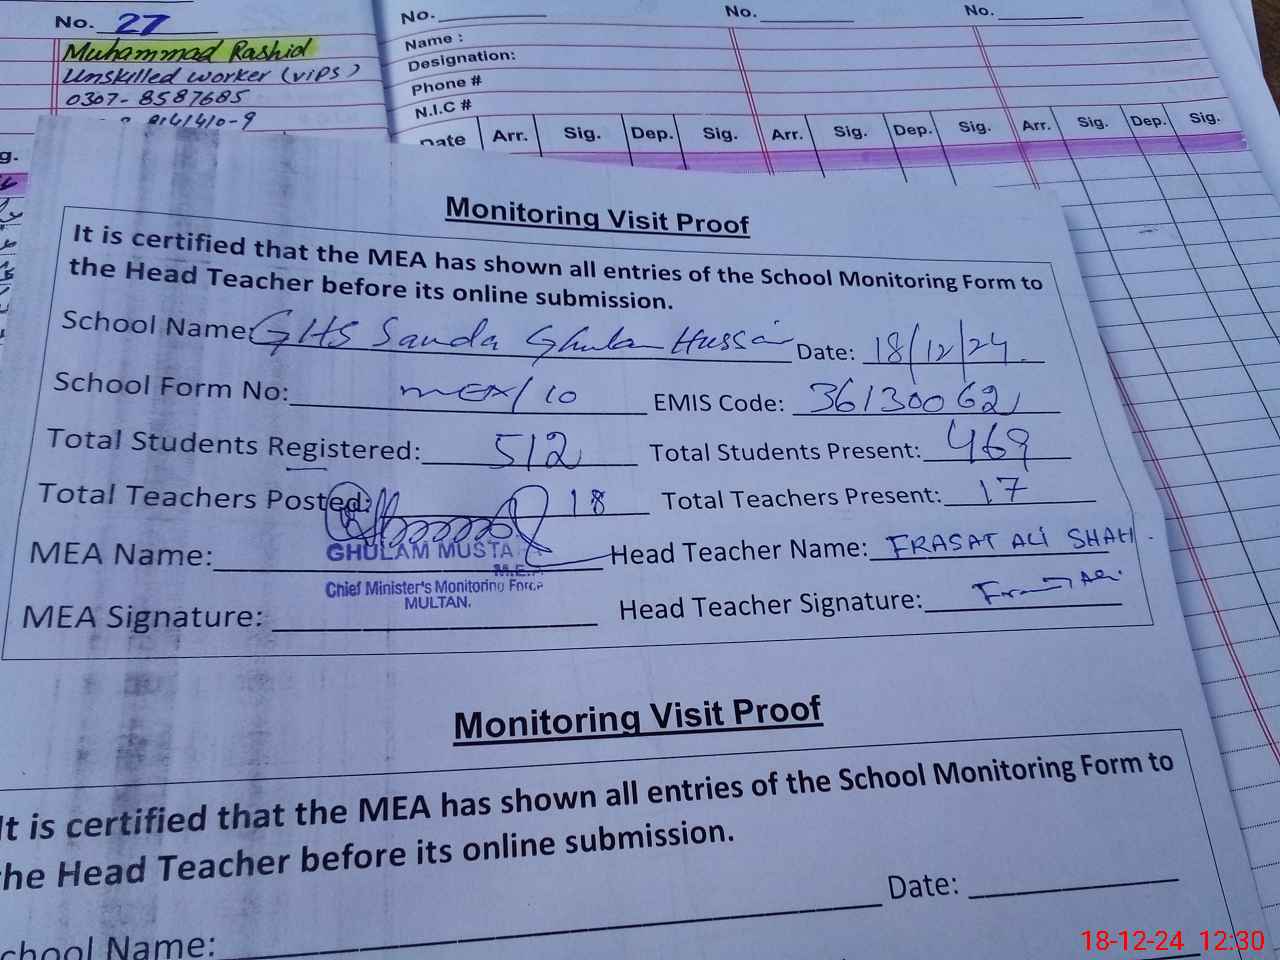 No. 27
Muhammad Rashid
Unskilled worker (VIPS)
0307-8587685
8141410-9
No. No. No.
Name :
Designation:
Phone #
N.I.C #
Date Arr. Sig. Dep. Sig. Arr. Sig. Dep. Sig. Arr. Sig. Dep. Sig.
Monitoring Visit Proof
It is certified that the MEA has shown all entries of the School Monitoring Form to
the Head Teacher before its online submission.
School Name: GHS Sanda Ghulam Hussain Date: 18/12/24
School Form No: mex/10 EMIS Code: 36130062
Total Students Registered: 512 Total Students Present: 469
Total Teachers Posted: 18 Total Teachers Present: 17
MEA Name: GHULAM MUSTA Head Teacher Name: FRASAT ALI SHAH.
M.E.A
Chief Minister's Monitoring Force
MULTAN.
MEA Signature: Head Teacher Signature:
Monitoring Visit Proof
It is certified that the MEA has shown all entries of the School Monitoring Form to
the Head Teacher before its online submission.
Date:
School Name:
18-12-24 12:30